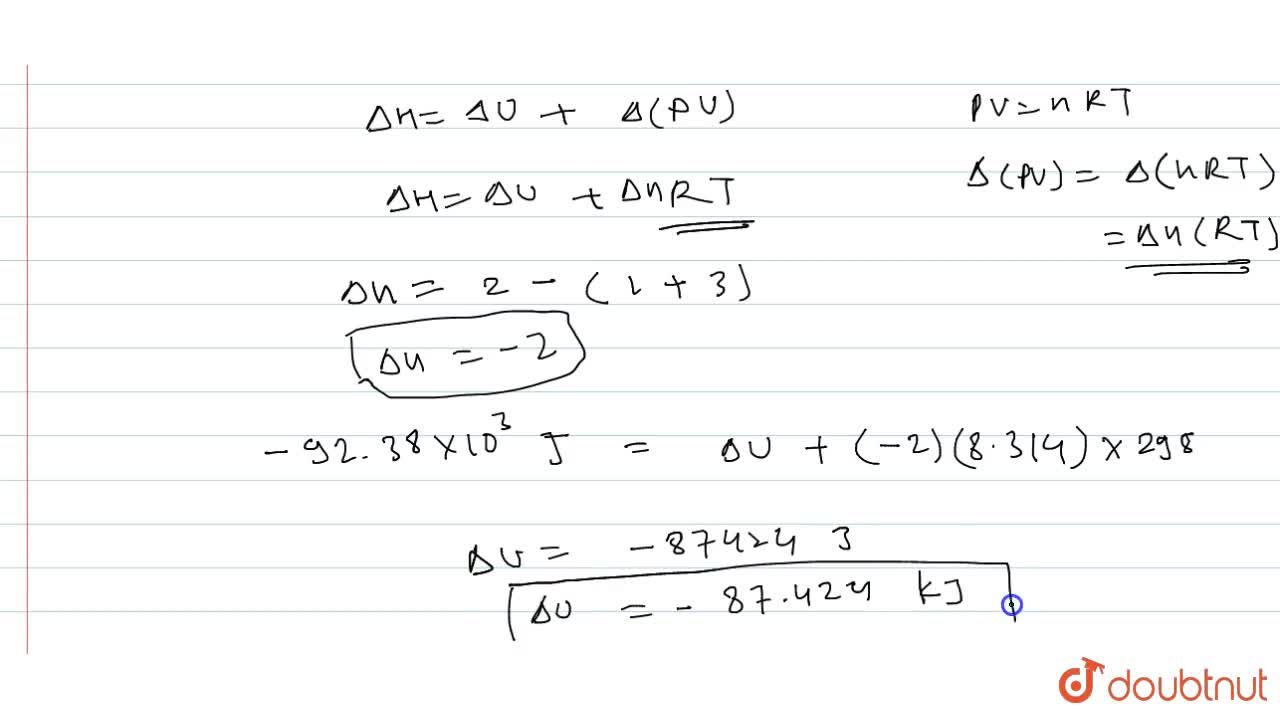 ΔH = ΔU + Δ(PV)
PV = nRT
ΔH = ΔU + ΔnRT
Δ(PV) = Δ(nRT)
= Δn(RT)
Δn = 2 - (1 + 3)
Δn = -2
-92.38 × 10³ J = ΔU + (-2)(8.314) × 298
ΔU = -87424 J
ΔU = - 87.424 kJ
doubtnut